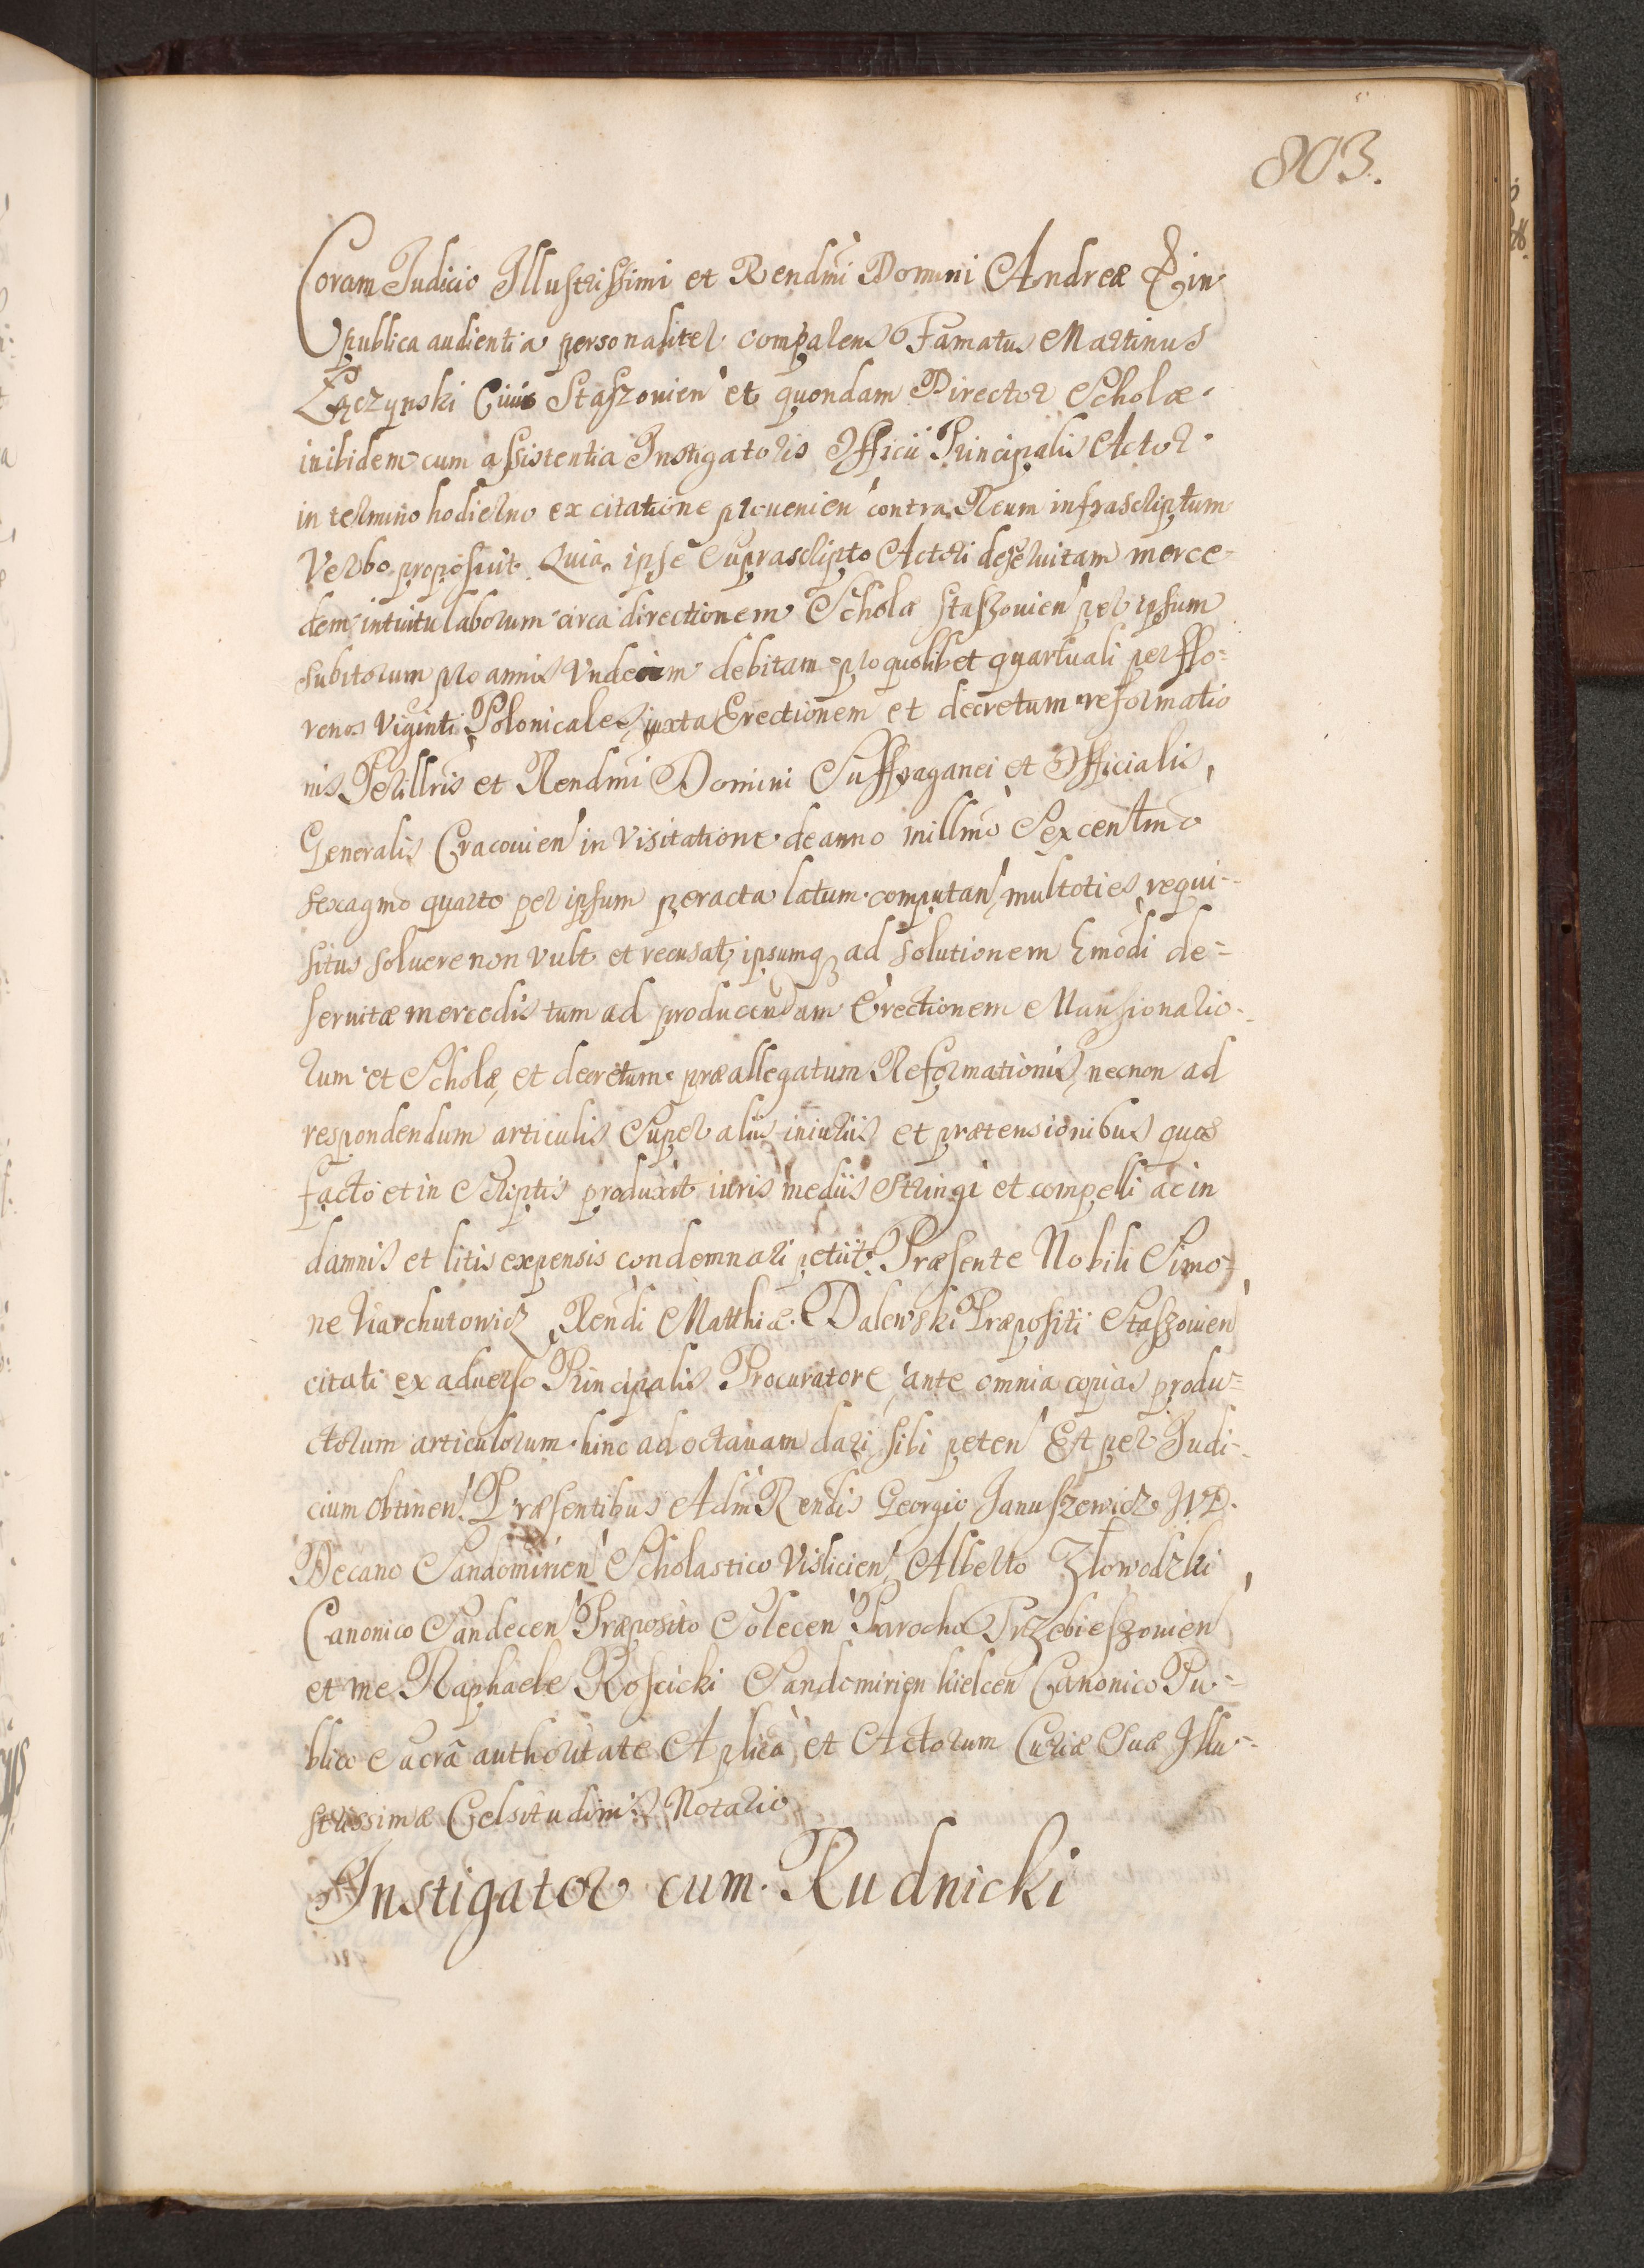 803.
Coram Judicio Illustrissimi et Rendmi Domini Andreæ & in
publica audientia personaliter comparens Famatus Martinus
Łęczynski Ciuis Staszouien et quondam Director Scholæ
inibidem cum assistentia Instigatoris Officii Principalis Actor
in termino hodierno ex citatione prouenien contra Reum infrascriptum
Verbo proposuit. Quia ipse suprascripto Actori deseruitam merce-
dem intuitu laborum circa directionem Scholæ Staszouien per ipsum
subitorum pro annis Vndecim debitam pro quolibet quartuali per flo=
renos Viginti Polonicales, iuxta Erectionem et decretum reformatio
nis Perillris et Rendmi Domini Suffraganei et Officialis
Generalis Cracouien in Visitatione de anno millmo Sexcentmo
sexagmo quarto per ipsum peracta latum computan, multoties requi-
situs soluere non vult et recusat, ipsumq3 ad solutionem hmodi de=
seruitæ mercedis tum ad producendam Erectionem Mansionario-
rum et Scholæ, et decretum præallegatum Reformationis, necnon ad
respondendum articulis super aliis iniuriis et prætensionibus quos
facto et in scriptis produxit iuris mediis stringi et compelli ac in
damnis et litis expensis condemnari petiit. Præsente Nobili Simo-
ne Charchutowicz Rendi Matthiæ Dalewski Præpositi Staszouien
citati ex aduerso Principalis Procuratore, ante omnia copias produ=
ctorum articulorum hinc ad octauam dari sibi peten Et per Judi-
cium obtinen. Præsentibus Adm Rendis Georgio Januszewicz JVD.
Decano Sandomirien Scholastico Vislicien, Alberto Złowodzki
Canonico Sandecen Præposito Solecen Parocho Trzebieszouien
et me Raphaele Roscicki Sandomirien Kielcen Canonico Pu-
blico Sacrâ authoritate Aplica et Actorum Curiæ Suæ Illu-
strissimæ Celsitudinis Notario
Instigator cum Rudnicki